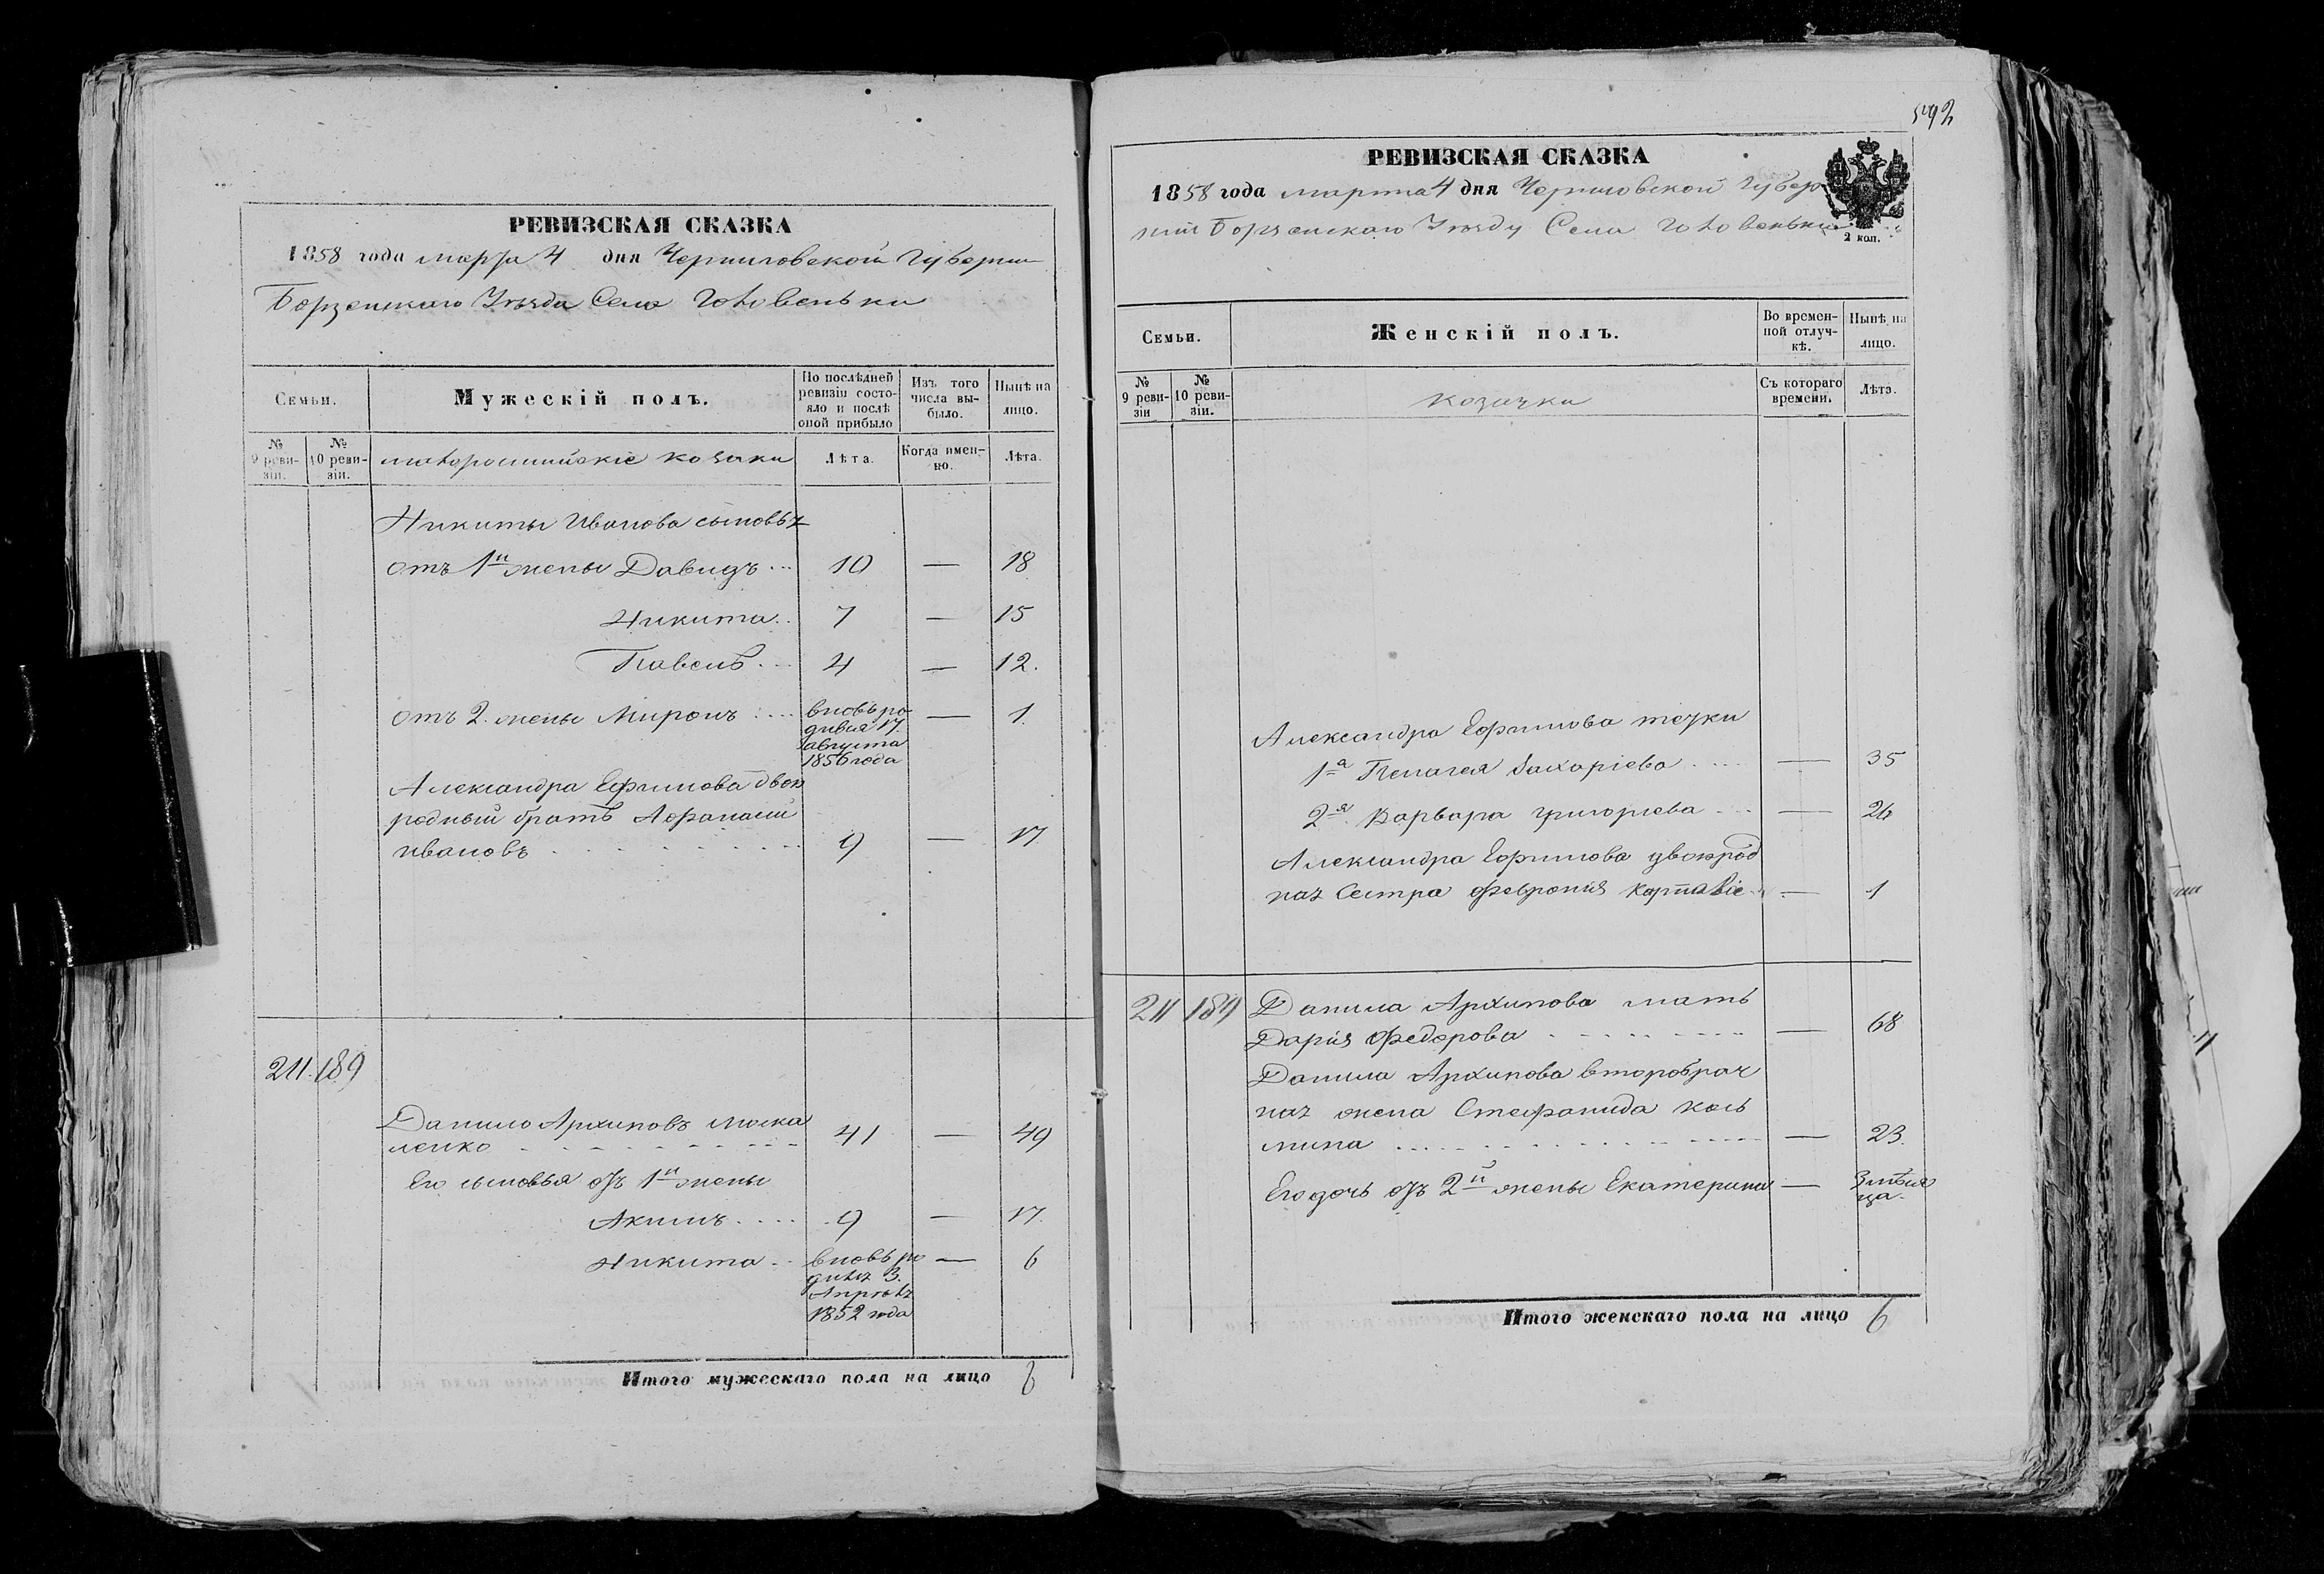 РЕВИЗСКАЯ СКАЗКА
1858 года марта 4 дня Черниговской Губернии
Борзенскаго Уѣзда Села Головеньки
Семьи.
Мужескій полъ.
По послѣдней ревизіи состояло и послѣ оной прибыло
Изъ того числа выбыло.
Нынѣ на лицо.
№ 9 ревизіи.
№ 10 ревизіи.
малороссийскіе козаки
Лѣта.
Когда именно.
Лѣта.
Никиты Иванова сыновья
отъ 1й жены Давидъ ... 10 — 18
Никита .. 7 — 15
Павелъ ... 4 — 12.
отъ 2. жены Миронъ .... вновь ро — 1.
дився 17.
августа
1856 года
Александра Ефимова двою
родный братъ Афанасий
ивановъ 9 — 17
211. 189
Данило Архиповъ Моска
ленко 41 — 49
Его сыновья отъ 1й жены
Акимъ .... 9 — 17.
Никита .. вновь ро — 6
дився 3.
Апрѣля
1852 года
Итого мужескаго пола на лицо 8
592
РЕВИЗСКАЯ СКАЗКА
1858 года марта 4 дня Черниговской Губер
нии Борзенскаго Уѣзду Села Головеньки
2 коп.
Семьи.
Женскій полъ.
Во временной отлучкѣ.
Нынѣ на лицо.
№ 9 ревизіи
№ 10 ревизіи.
козачки
Съ котораго времени.
Лѣта.
Александра Ефимова тетки
1а Пелагея Захаріева .... — 35
2я Варвара григорьева ... — 26
Александра Ефимова двоюрод
ная Сестра Феврония — 1
211 189 Данила Архипова мать
Дарія Федорова — 68
Данила Архипова второбрач
ная жена Стефанида кось
мина — 23.
Его дочь отъ 2й жены Екатерина — 3 мѣся
ца.
Итого женскаго пола на лицо 6